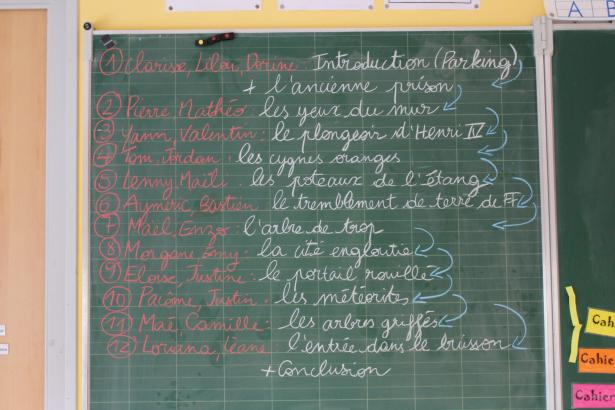 ① Clarisse, Lilou, Dorine: Introduction (Parking)
+ l'ancienne prison
② Pierre, Mathéo: les yeux du mur
③ Yann, Valentin: le plongeoir d'Henri IV
④ Tom, Jordan: les cygnes oranges
⑤ Lenny, Maël: les poteaux de l'étang
⑥ Aymeric, Bastien: le tremblement de terre de FF
⑦ Maël, Enzo: l'arbre de trop
⑧ Morgane, Émy: la cité engloutie
⑨ Eloïse, Justine: le portail rouillé
⑩ Pacôme, Justin: les météorites
⑪ Maé, Camille: les arbres griffés
⑫ Louana, Léane: l'entrée dans le buisson
+ Conclusion
A B
Cah
Cahier
Cahie